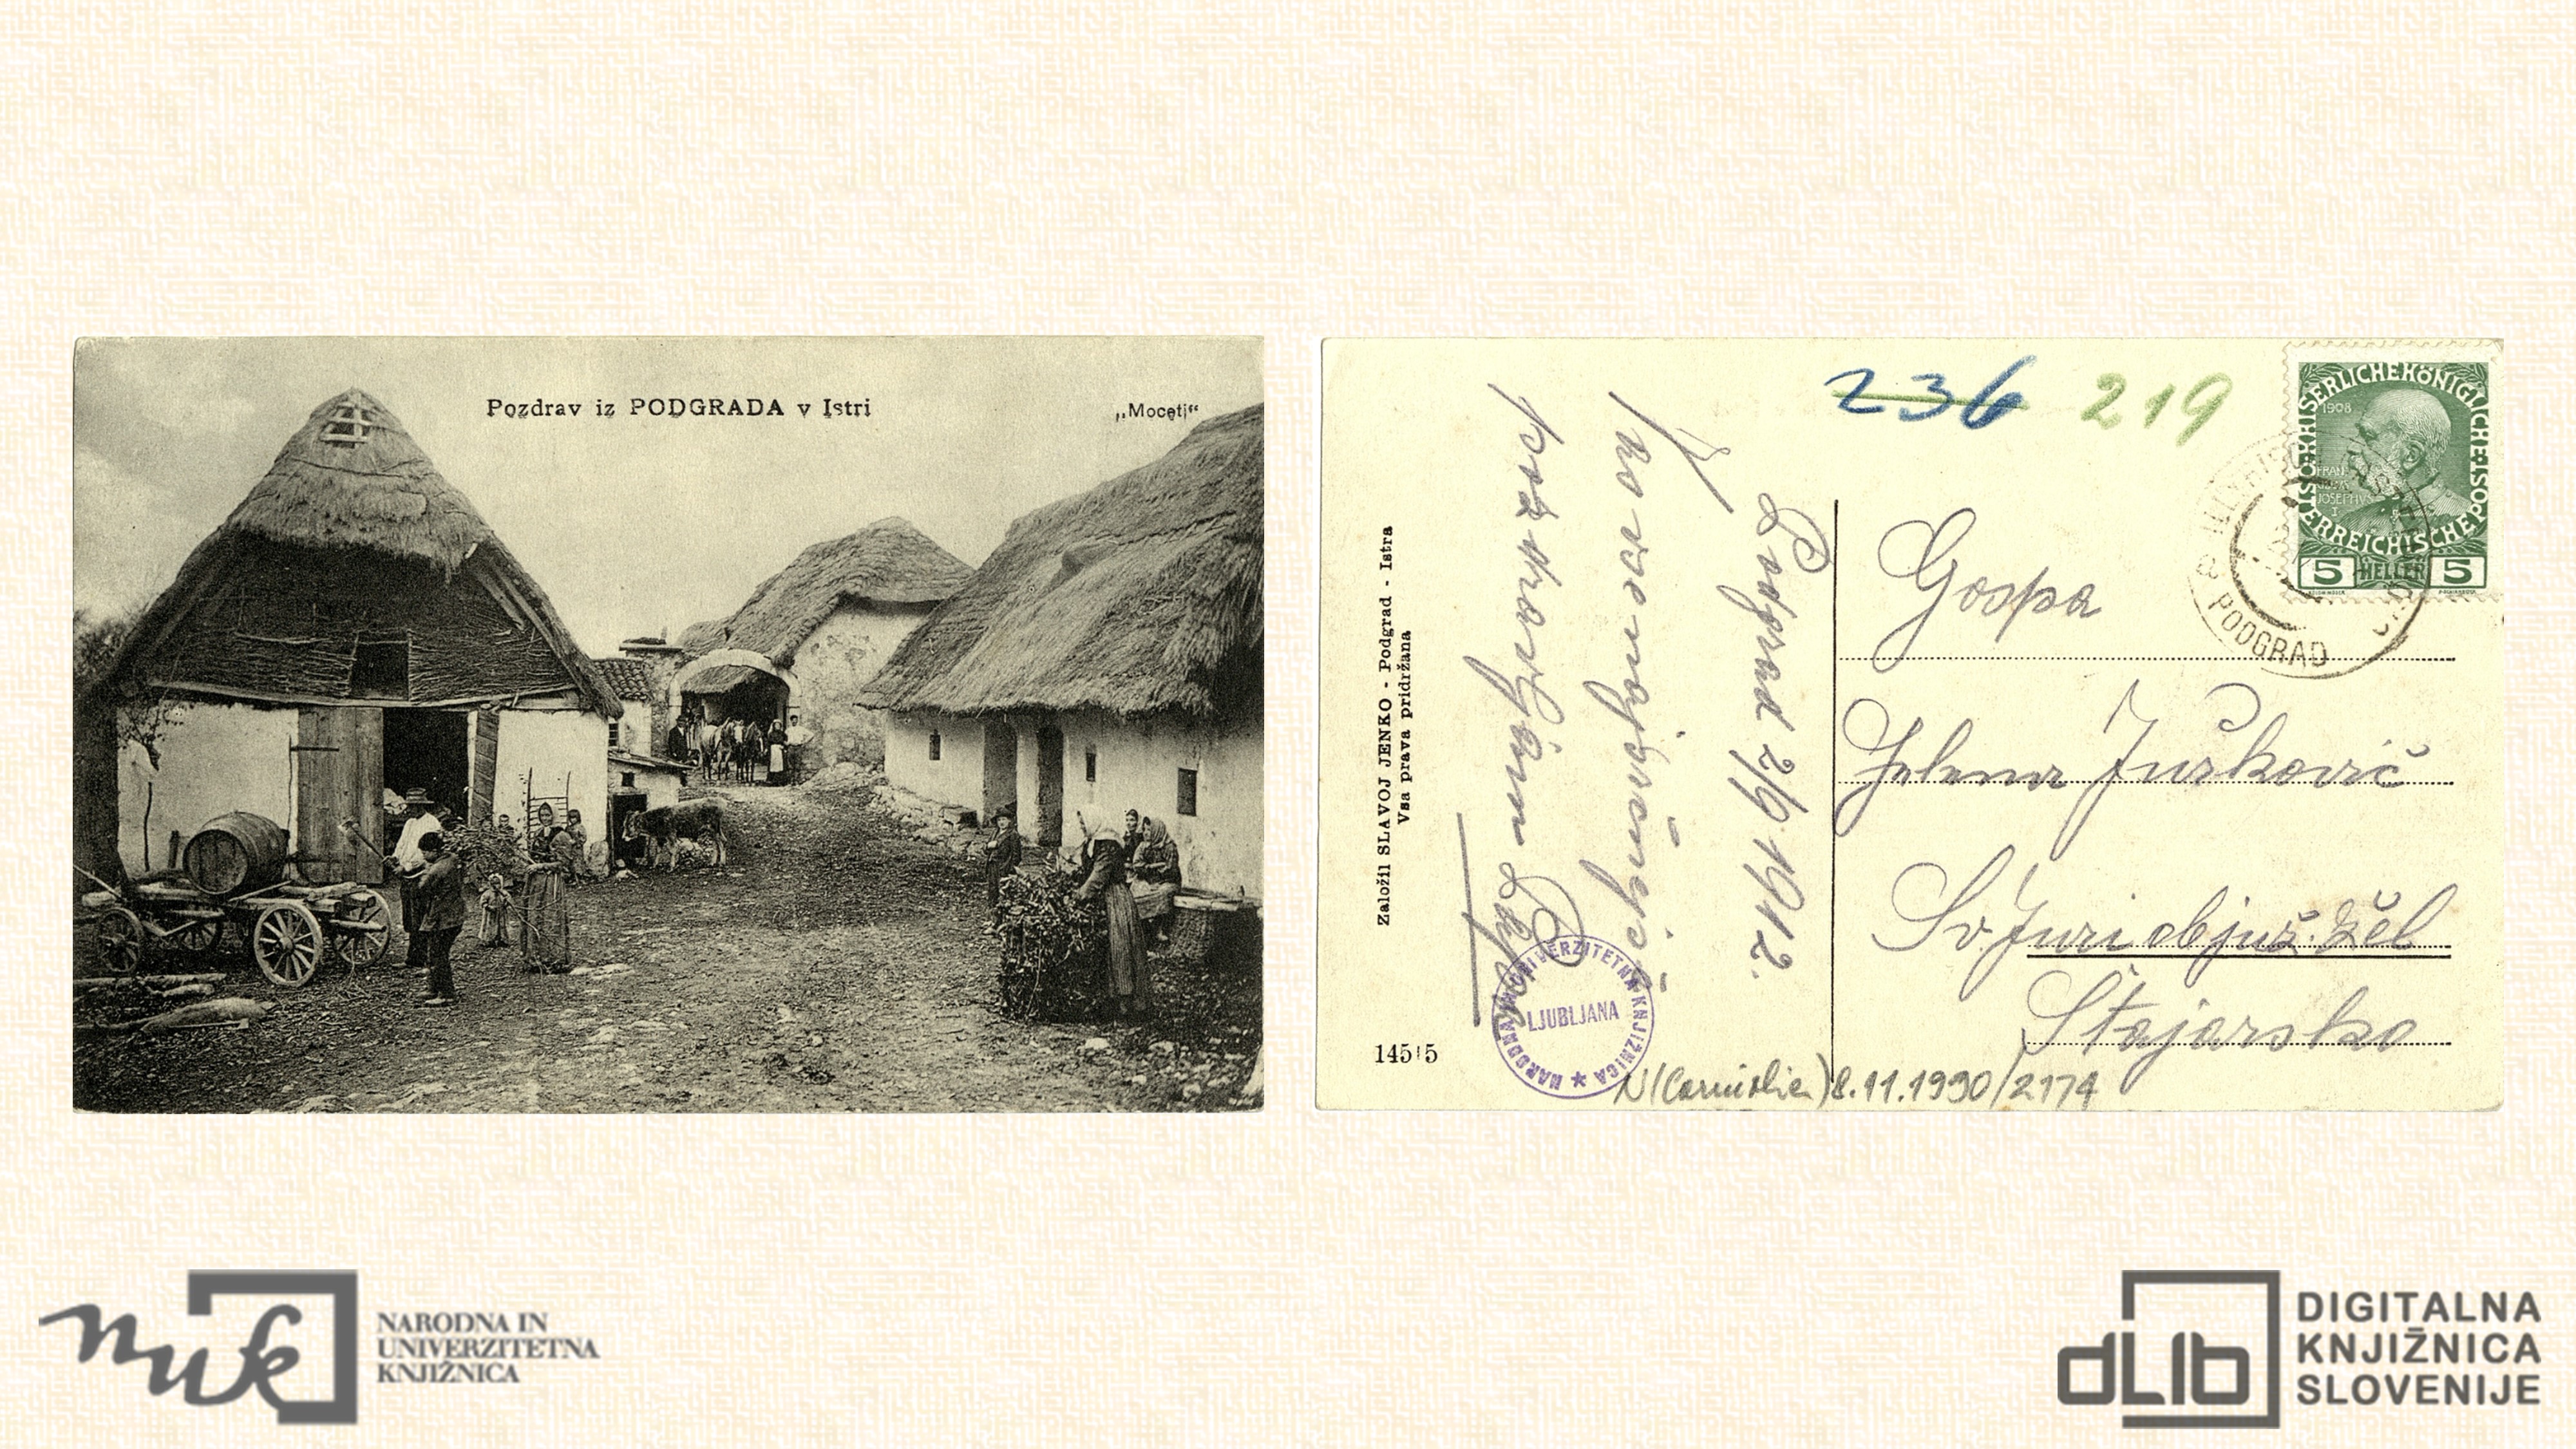 Pozdrav iz PODGRADA v Istri
„Moceti“
236 219
ÖSTERREICHISCHE POST
KAISERLICHE KÖNIGLICHE
1908
FRAN
JOSEPHVS
I
5 HELLER 5
PODGRAD
Podgrad 2/9 1912.
pozdravljam
Založil SLAVOJ JENKO - Podgrad - Istra
Vsa prava pridržana
14515
Gospa
Jelena Juškovič
Sv. Juri ob juž. žel
Štajersko
NARODNA IN UNIVERZITETNA KNJIŽNICA
LJUBLJANA
N(Carniolica) 8.11.1990/2174
nuk
NARODNA IN
UNIVERZITETNA
KNJIŽNICA
dLib
DIGITALNA
KNJIŽNICA
SLOVENIJE